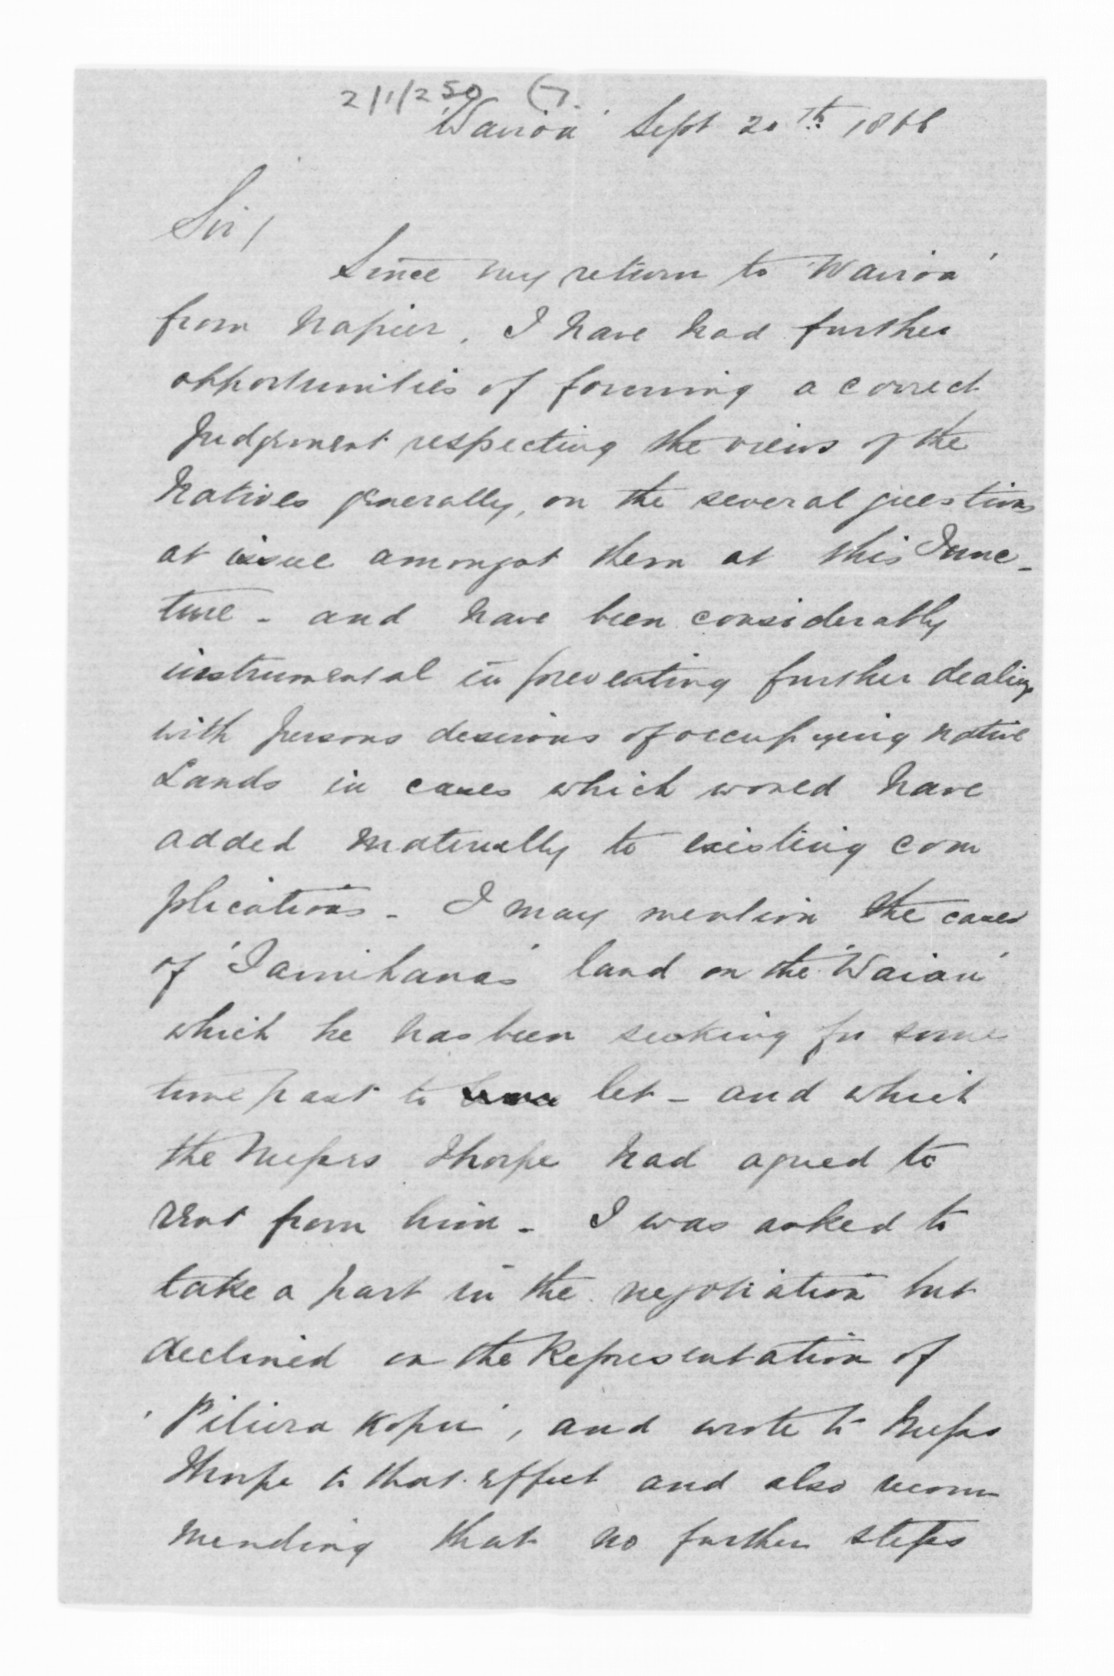 2/1/250 G.
'Wairoa' Sept 20th 1866
Sir/
Since my return to 'Wairoa'
from Napier, I have had further
opportunities of forming a correct
Judgement respecting the views of the
Natives generally, on the several questions
at issue amongst them at this Junc-
ture - and have been considerably
instrumental in preventing further dealings
with persons desirous of occupying native
Lands in cases which would have
added materially to existing com
plications - I may mention the cases
of 'Tamihana's' land on the 'Waiau'
which he has been seeking for some
time past to let - and which
the Messrs Thorpe had agreed to
rent from him - I was asked to
take a part in the negotiation but
declined on the Representation of
'Pitiera Kopu', and wrote to Messrs
Thorpe to that effect and also recom
mending that no further steps